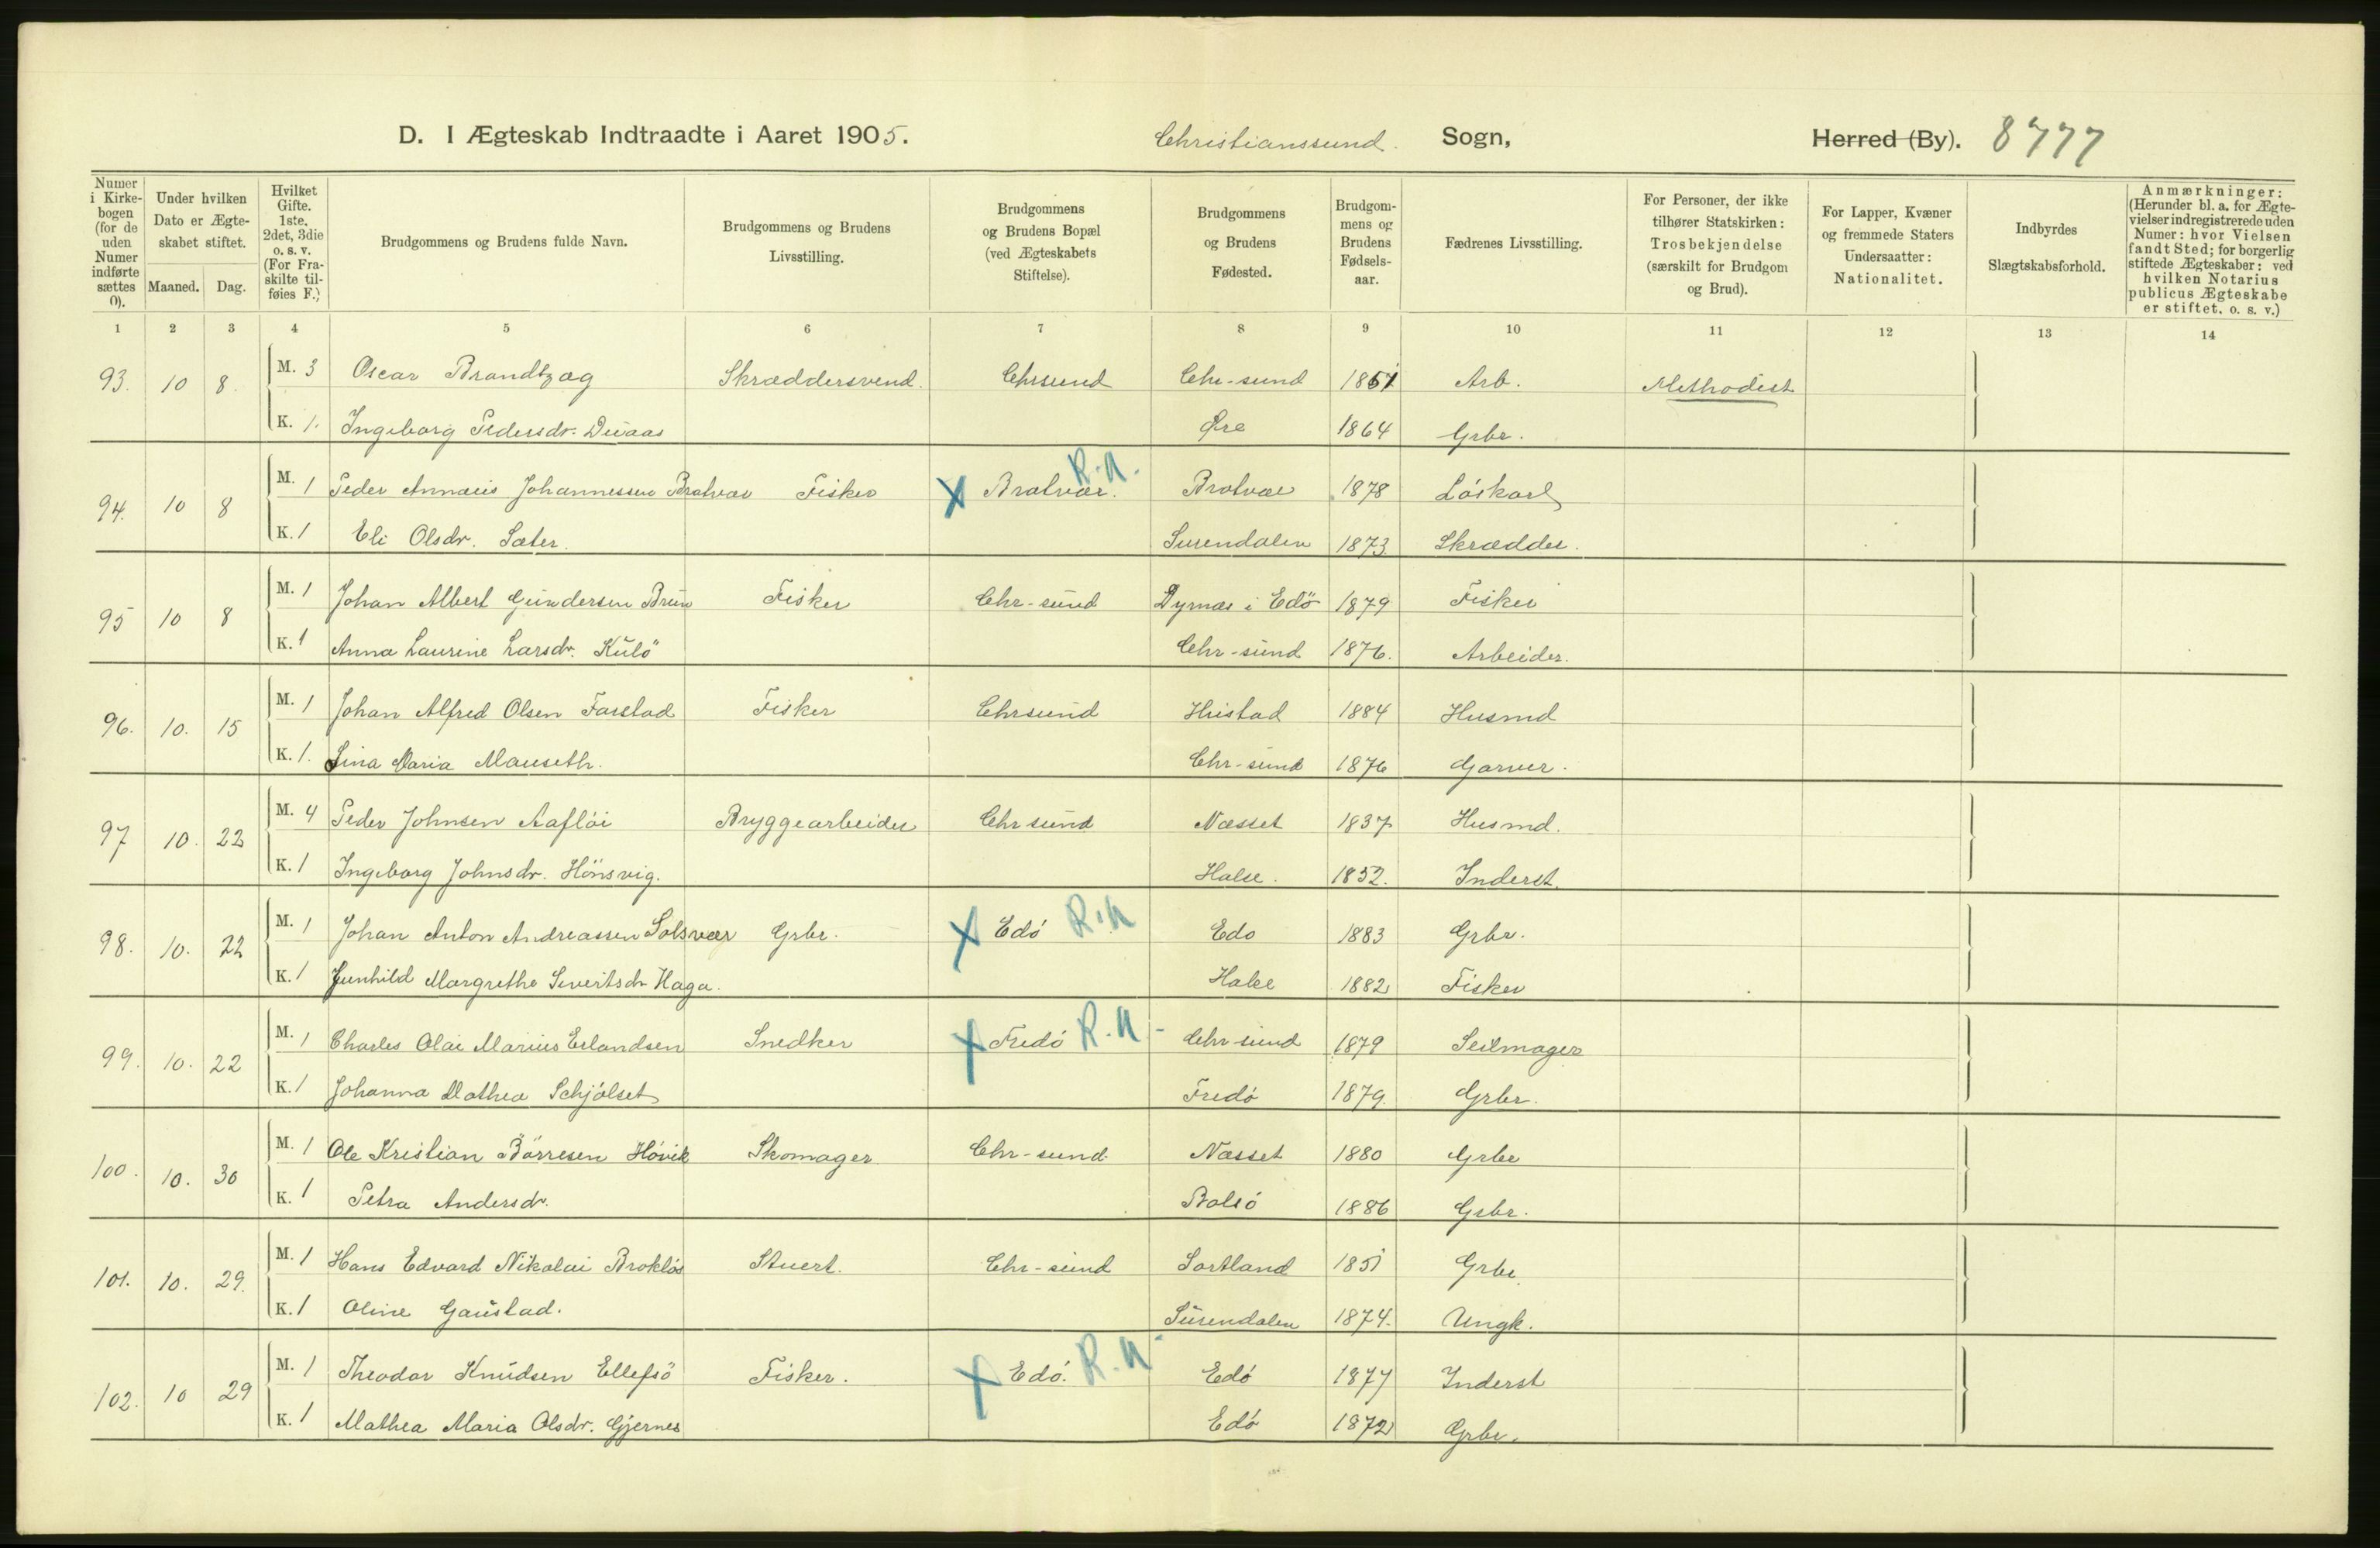 D. I Ægteskab Indtraadte i Aaret 1905. Christianssund. Sogn, Herred (By). 8777
Numer i Kirkebogen (for de uden Numer indførte sættes 0).
Under hvilken Dato er Ægteskabet stiftet.
Maaned. Dag.
Hvilket Gifte. 1ste. 2det, 3die o. s. v. (For Fraskilte tilføies F.)
Brudgommens og Brudens fulde Navn.
Brudgommens og Brudens Livsstilling.
Brudgommens og Brudens Bopæl (ved Ægteskabets Stiftelse).
Brudgommens og Brudens Fødested.
Brudgommens og Brudens Fødselsaar.
Fædrenes Livsstilling.
For Personer, der ikke tilhører Statskirken: Trosbekjendelse (særskilt for Brudgom og Brud).
For Lapper, Kvæner og fremmede Staters Undersaatter: Nationalitet.
Indbyrdes Slægtskabsforhold.
Anmærkninger: (Herunder bl. a. for Ægtevielser indregistrerede uden Numer: hvor Vielsen fandt Sted; for borgerlig stiftede Ægteskaber: ved hvilken Notarius publicus Ægteskabe er stiftet. o. s. v.)
1 2 3 4 5 6 7 8 9 10 11 12 13 14
93. 10 8. M. 3 Oscar Brandtzæg Skræddersvend. Chrsund Chr-sund 1851 Arb. Methodist
K. 1. Ingeborg Pedersdr. Øre 1864 Grbr.
94. 10 8 M. 1 Peder Johannessen Bratvær Fisker X Bratvær. R.N. Bratvær 1878 Løskarl
K. 1 Eli Olsdr. Sæter. Surendalen 1873 Skrædder.
95 10 8 M. 1 Johan Albert Gundersen Brun Fisker Chr-sund Dyrnæs i Edö 1879 Fisker
K. 1 Anna Laurine Larsdr. Kulö Chr-sund 1876. Arbeider.
96. 10. 15 M. 1 Johan Alfred Olsen Farstad Fisker Chrsund Hustad 1884 Husmd
K. 1. Lina Maria Mauseth. Chr-sund 1876 Garver.
97 10. 22 M. 4 Peder Johnsen Aafløi Bryggearbeider Chr sund Næsset 1837 Husmd.
K. 1 Ingeborg Johnsdr. Hönsvig. Halse. 1852. Inderst.
98. 10. 22 M. 1 Johan Anton Andreassen Solsvær Grbr. X Edø R.N Edø 1883 Grbr.
K. 1 Gunhild Margrethe Sivertsdr Haga. Halse 1882 Fisker
99. 10. 22 M. 1 Charles Olai Marius Erlandsen Snedker X Fredø R.N - Chr sund 1879 Seilmager
K. 1 Johanna Mathea Schjølset Fredø 1879. Grbr.
100. 10. 30 M. 1 Ole Kristian Börresen Høvik Skomager Chr-sund Næsset 1880 Grbr
K. 1 Petra Andersdr. Bolsø 1886 Grbr.
101. 10. 29. M. 1 Hans Edvard Nikolai Brokløs Stuert. Chr-sund Sortland 1851 Grbr.
K. 1 Oline Gaustad. Surendalen 1874. Ungk.
102. 10 29 M. 1 Theodor Knudsen Ellefsö Fisker. X Edø. R.N Edø 1877 Inderst
K. 1 Mathea Maria Olsdr. Gjernes Edø 1872 Grbr.